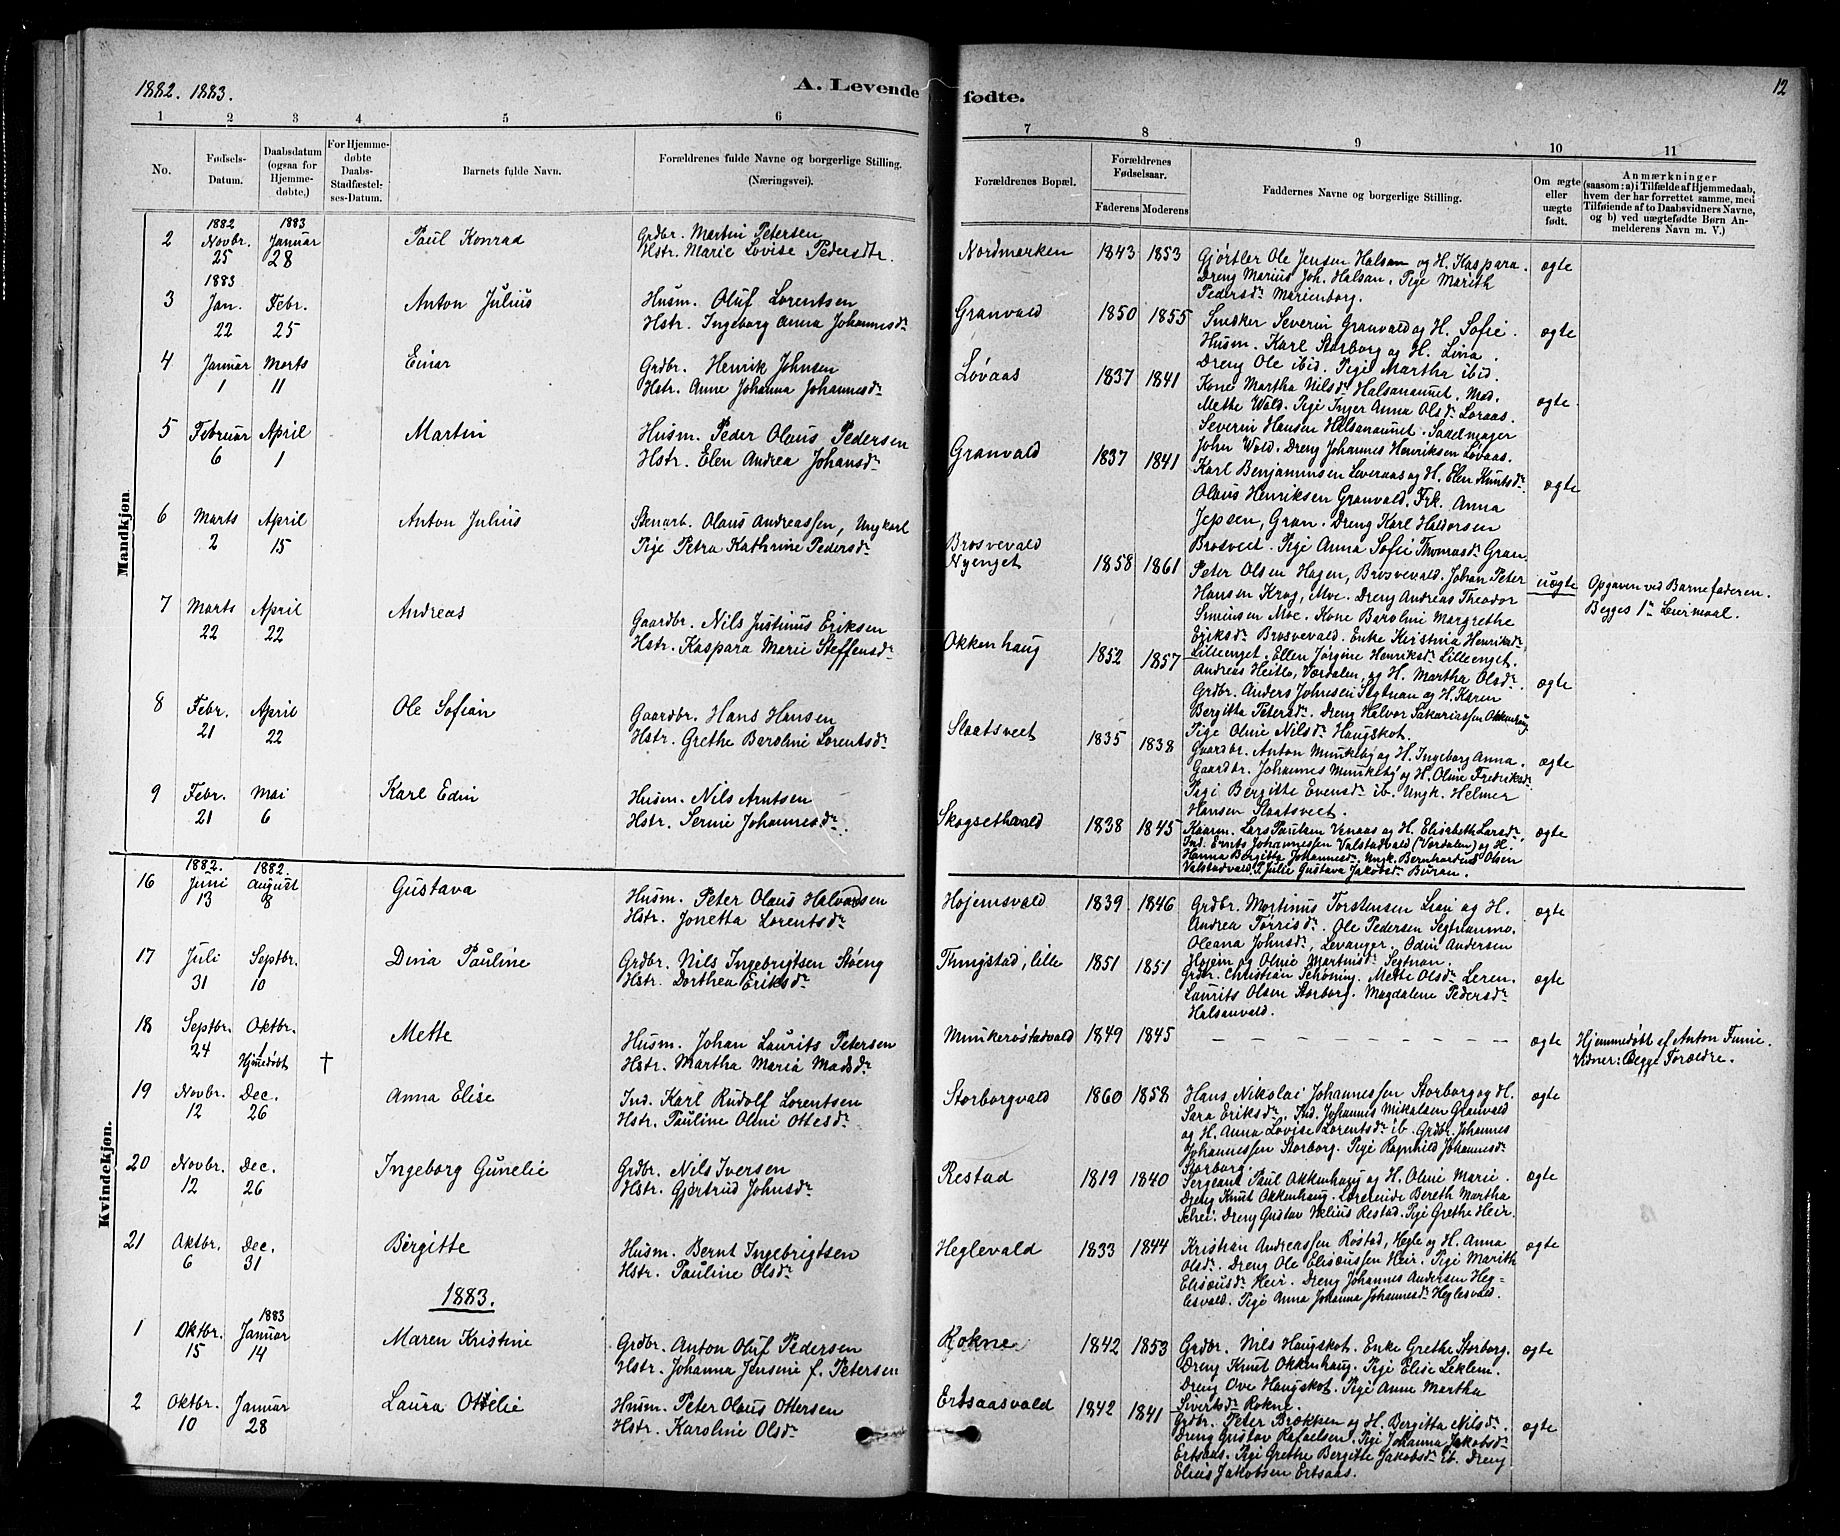 1882. 1883.
A. Levende fødte.
12
1 2 3 4 5 6 7 8 9 10 11
No.
Fødsels-Datum.
Daabsdatum (ogsaa for Hjemme-døbte.)
For Hjemme-døbte Daabs-Stadfæstel-ses-Datum.
Barnets fulde Navn.
Forældrenes fulde Navne og borgerlige Stilling. (Næringsvei).
Forældrenes Bopæl.
Forældrenes Fødselsaar.
Faderens Moderens
Faddernes Navne og borgerlige Stilling.
Om ægte eller uægte født.
Anmærkninger
(saasom: a) i Tilfælde af Hjemmedaab,
hvem der har forrettet samme, med
Tilføiende af to Daabsvidners Navne,
og b) ved uægtefødte Børn An-
melderens Navn m. V.)
Mandkjøn.
2 1882 Novbr. 25 1883 Januar 28 Paul Konrad
Grdbr. Martin Petersen
Hstr. Marie Lovise Pedersdtr.
Nordmarken 1843 1853
Gjørtler Ole Jensen Halsan og H. Kaspara.
Dreng Marius Joh. Halsan, Pige Marith
Pedersdr Marienborg.
ægte
3 1883 Jan. 22 Febr. 25 Anton Julius
Husm. Oluf Lorentsen
Hstr. Ingeborg Anna Johannesdr
Granvald 1850 1855
Snedker Severin Granvald og H. Sofie.
Husm. Karl Storborg og H. Lina.
Dreng Ole ibid. Pige Martha ibid.
ægte
4 Januar 1 Marts 11 Einar
Grdbr. Henrik Johnsen
Hstr. Anne Johanna Johannesdr
Løvaas 1837 1841
Kone Martha Nilsdr Halsanaunet. Mad.
Methe Wold. Pige Inger Anna Olsdr Løvaas.
Severin Hansen Halsanaunet. Sadelmager
John Wold. Dreng Johannes Henriksen Løvaas.
ægte
5 Februar 6 April 1 Martin
Husm. Peder Olaus Pedersen
Hstr. Elen Andrea Johansdr
Granvald 1837 1841
Karl Benjaminsen Leveraas og H. Elen Knutsdr
Olaus Henriksen Granvald. Frk. Anna
Jepsen, Gran. Dreng Karl Haldorsen
Brosveet. Pige Anna Sofie Thomasdr Gran
ægte
6 Marts 2 April 15 Anton Julius
Stenarb. Olaus Andreassen, Ungkarl
Pige Petra Kathrine Pedersdr
Brosvevald
Nyenget
1858 1861
Peter Olsen Hagen, Brosvevald. Johan Peter
Hansen Krog, Moe. Dreng Andreas Theodor
Simensen Moe. Kone Baroline Margrethe
Eriksdr Brosvevald. Enke Kristina Henriksdr
Lilleenget. Ellen Jørgine Henriksdr Lilleenget.
uægte
Opgaven ved Barnefaderen.
Begges 1ste Leiermaal.
7 Marts 22 April 22 Andreas
Gaardbr. Nils Justinus Eriksen
Hstr. Kaspara Merie Steffensdr
Okkenhaug 1852 1857
Andreas Heitlo, Værdalen, og H. Martha Olsdr.
Grdbr. Anders Johnsen Segtnan og H. Karen
Bergitta Petersdr. Dreng Halvor Sakariassen Okkenhaug
Pige Oline Nilsdr Haugskot.
ægte
8 Febr. 21 April 22 Ole Sofian
Gaardbr. Hans Hansen
Hstr. Grethe Baroline Lorentsdr
Slaatsveet 1835 1838
Gaardbr. Anton Munkeby og H. Ingeborg Anna.
Gaardbr. Johannes Munkeby og H. Oline Fredriksdr
Pige Bergitte Evensdr ib. Ungk. Helmer
Hansen Slaatsveet.
ægte
9 Febr. 21 Mai 6 Karl Edin
Husm. Nils Arntsen
Hstr. Serine Johannesdr.
Skogsethvald 1838 1845
Kaarm. Lars Paulsen Venaas og H. Elisabeth Larsdr,
Ind. Erits Johannessen Valstadvald (Værdalen) og H.
Hanna Bergitta Johannesdr. Ungk. Bernhardus Olsen
Valstadvald. P. Julie Gustava Jakobsdr Buran.
ægte
Kvindekjøn.
16 1882. Juni 13 1882. August 8 Gustava
Husm. Peter Olaus Halvorsen
Hstr. Jonetta Lorentsdr
Hojemsvald 1839 1846
Grdbr. Martinus Torstensen Lian og H.
Andrea Tørrisdr. Ole Pedersen Segtnanmo.
Oleana Johnsdr, Levanger. Odin Andersen
Hojem og Oline Martinsdr Segtnan.
ægte
17 Juli 31 Septbr. 10 Dina Pauline
Grdbr. Nils Ingebrigtsen Støeng
Hstr. Dorthea Eriksdr
Thingstad, lille 1851 1851
Grdbr. Christian Schøning. Mette Olsdr Leren.
Laurits Olsen Storborg. Magdalene Pedersdr
Halsanvald.
ægte
18 Septbr. 24 Oktbr. 1 Hjmedøbt † Mette
Husm. Johan Laurits Petersen
Hstr. Martha Maria Madsdr
Munkerøstadvald 1849 1845
— — — — — — — — —
ægte
Hjemmedøbt af Anton Funie.
Vidner: Begge Forældre.
19 Novbr. 12 Dec. 26 Anna Elise
Ind. Karl Rudolf Lorentsen
Hstr. Pauline Oline Ottesdr
Storborgvald 1860 1858
Hans Nikolai Johannessen Storborg og H.
Sara Eriksdr. Ind. Johannes Mikalsen Granvald
og H. Anna Lovise Lorentsdr ib. Grdbr. Johannes
Johannessen Storborg. Pige Ragnhild Johannesdr
Storborg.
ægte
20 Novbr. 12 Dec. 26 Ingeborg Gunelie
Grdbr. Nils Iversen
Hstr. Gjertrud Johnsdr
Restad 1819 1840
Sergeant Paul Okkenhaug og H. Oline Marie.
Dreng Knut Okkenhaug. Lærerinde Bereth Martha
Schei. Dreng Gustav Nelius Restad. Pige Grethe Heir.
ægte
21 Oktbr. 6 Dec. 31 Birgitte
Husm. Bernt Ingebrigtsen
Hstr. Pauline Olsdr
Heglevald 1833 1844
Kristian Andreassen Rostad, Hegle og H. Anna
Olsdr. Dreng Ole Elisæussen Heir. Pige Marith
Elisæusdr Heir. Dreng Johannes Andersen Heg-
lesvald. Pige Anna Johanna Johannesdr Heglesvald.
ægte
1883.
1 Oktbr. 15 1883 Januar 14 Maren Kristine
Grdbr. Anton Oluf Pedersen
Hstr. Johanna Jensine f. Petersen
Rokne 1842 1853
Grdbr. Nils Haugskot. Enke Grethe Storborg.
Dreng Knut Okkenhaug. Pige Elise Leklem.
Dreng Ove Haugskot. Pige Anne Martha
Sivertsdr Rokne.
ægte
2 Oktbr. 10 Januar 28 Laura Ottelie
Husm. Peter Olaus Ottersen
Hstr. Karoline Olsdr
Ertsaasvald 1842 1841
Grdbr. Peter Brækken og H. Bergitta Nilsdr.
Dreng Gustav Rafaelsen. Pige Johanna Jakobsdr
Ertsaas. Pige Grethe Bergitte Jakobsdr Eb. Dreng
Elius Jakobsen Ertsaas.
ægte